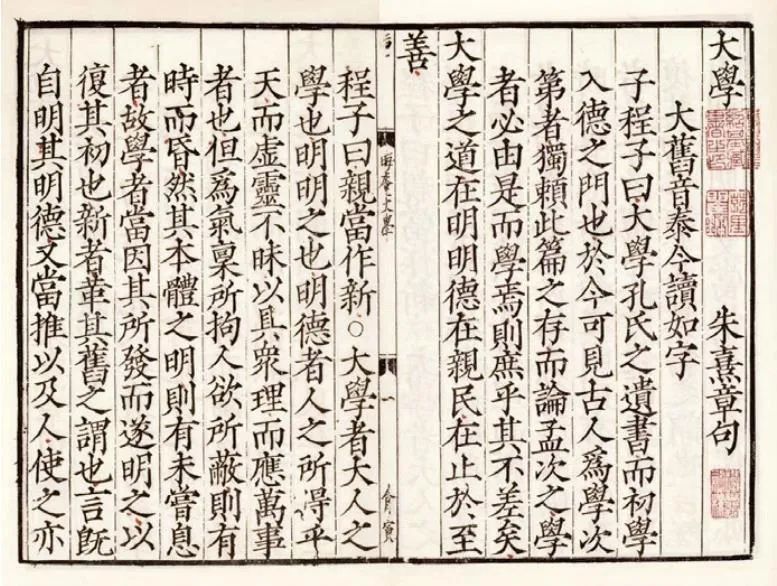 大學 朱熹章句
大舊音泰今讀如字
子程子曰大學孔氏之遺書而初學
入德之門也於今可見古人爲學次
第者獨賴此篇之存而論孟次之學
者必由是而學焉則庶乎其不差矣
大學之道在明明德在親民在止於至
善
大學 一
程子曰親當作新○大學者大人之
學也明明之也明德者人之所得乎
天而虛靈不昧以具衆理而應萬事
者也但爲氣稟所拘人欲所蔽則有
時而昏然其本體之明則有未嘗息
者故學者當因其所發而遂明之以
復其初也新者革其舊之謂也言旣
自明其明德又當推以及人使之亦